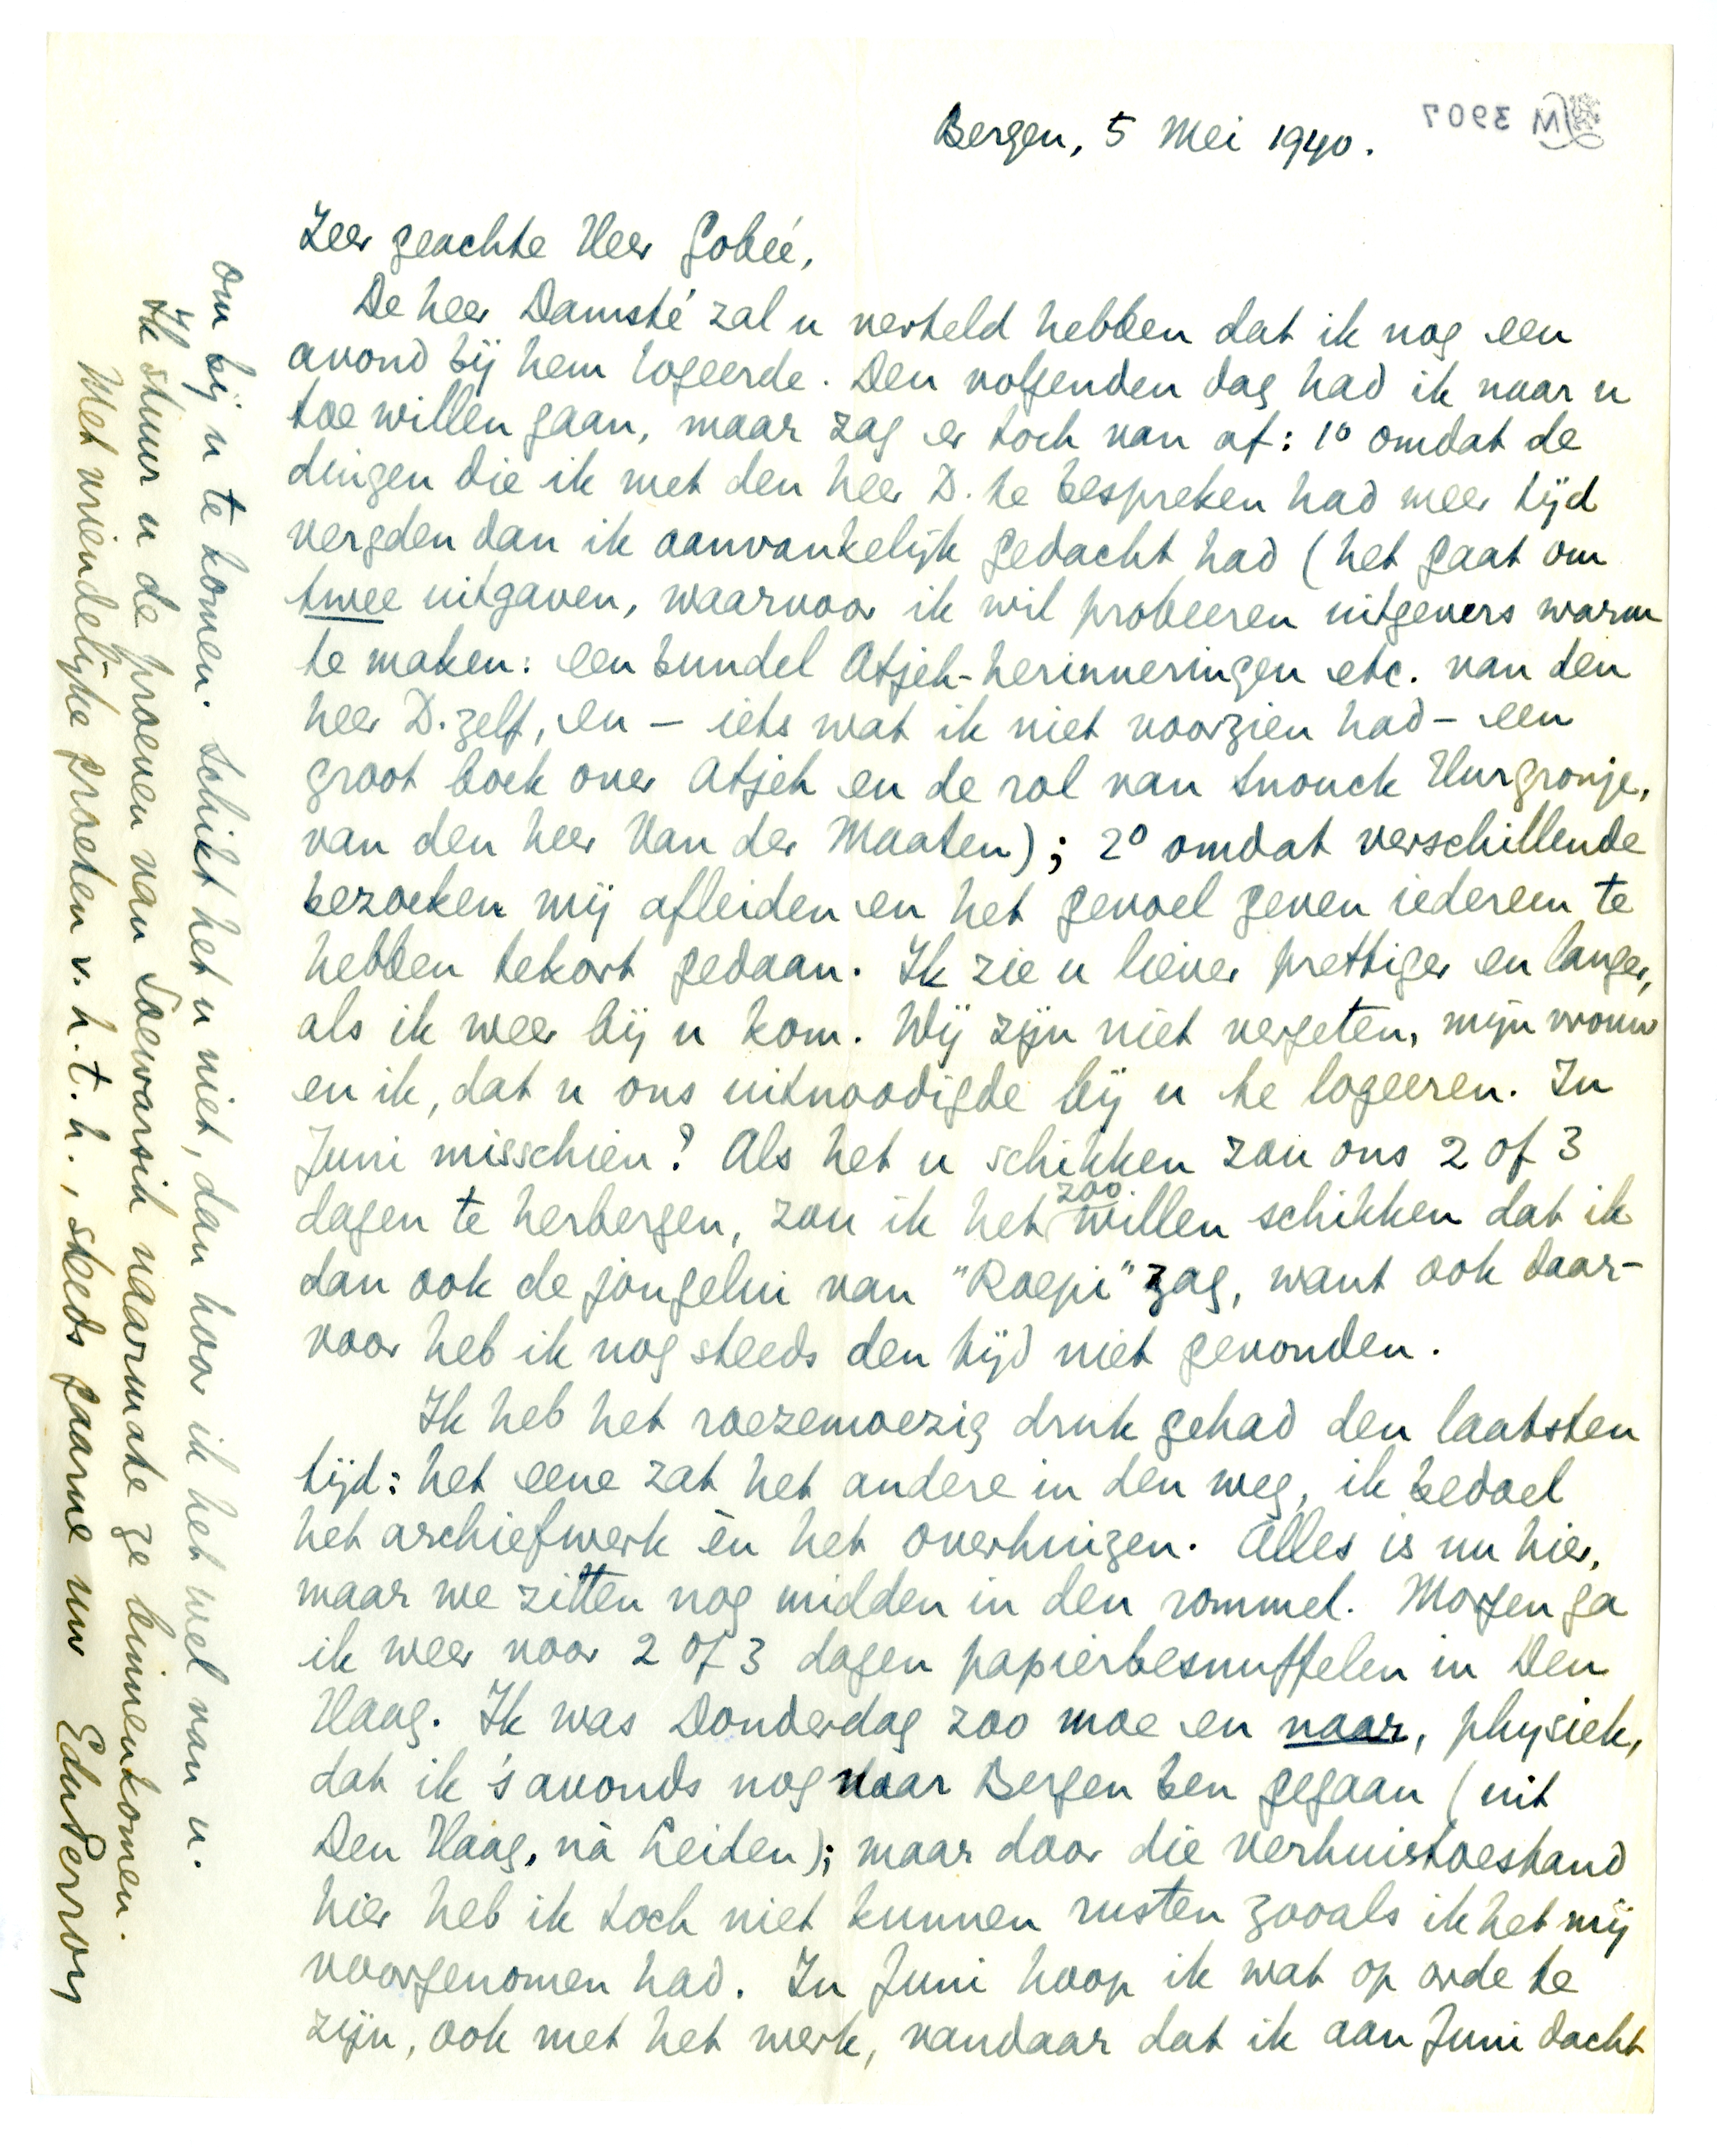 Bergen, 5 Mei 1940.
M 3907
Zeer geachte Heer Gobée,
De heer Damsté zal u verteld hebben dat ik nog een
avond bij hem logeerde. Den volgenden dag had ik naar u
toe willen gaan, maar zag er toch van af: 1º omdat de
dingen die ik met den heer D. te bespreken had meer tijd
vergden dan ik aanvankelijk gedacht had (het gaat om
twee uitgaven, waarvoor ik wil probeeren uitgevers warm
te maken: een bundel Atjeh-herinneringen etc. van den
heer D. zelf, en — iets wat ik niet voorzien had — een
groot boek over Atjeh en de rol van Snouck Hurgronje,
van den heer Van der Maaten); 2º omdat verschillende
bezoeken mij afleiden en het gevoel geven iedereen te
hebben tekort gedaan. Ik zie u liever prettiger en langer,
als ik weer bij u kom. Wij zijn niet vergeten, mijn vrouw
en ik, dat u ons uitnoodigde bij u te logeeren. In
Juni misschien? Als het u schikken zou ons 2 of 3
dagen te herbergen, zou ik het zoo willen schikken dat ik
dan ook de jongelui van "Roepi" zag, want ook daar-
voor heb ik nog steeds den tijd niet gevonden.
Ik heb het roezemoezig druk gehad den laatsten
tijd: het eene zat het andere in den weg, ik bedoel
het archiefwerk èn het overhuizen. Alles is nu hier,
maar we zitten nog midden in den rommel. Morgen ga
ik weer voor 2 of 3 dagen papierbesnuffelen in Den
Haag. Ik was Donderdag zoo moe en naar, physiek,
dat ik 's avonds nog naar Bergen ben gegaan (uit
Den Haag, nà Leiden); maar door die verhuistoestand
hier heb ik toch niet kunnen rusten zooals ik het mij
voorgenomen had. In Juni hoop ik wat op orde te
zijn, ook met het werk, vandaar dat ik aan Juni dacht
om bij u te komen. Schikt het u niet, dan hoor ik het wel van u.
Ik stuur u de proeven van Soewarsih naarmate ze binnenkomen.
Met vriendelijke groeten v. h. t. h., steeds gaarne uw EduPerron